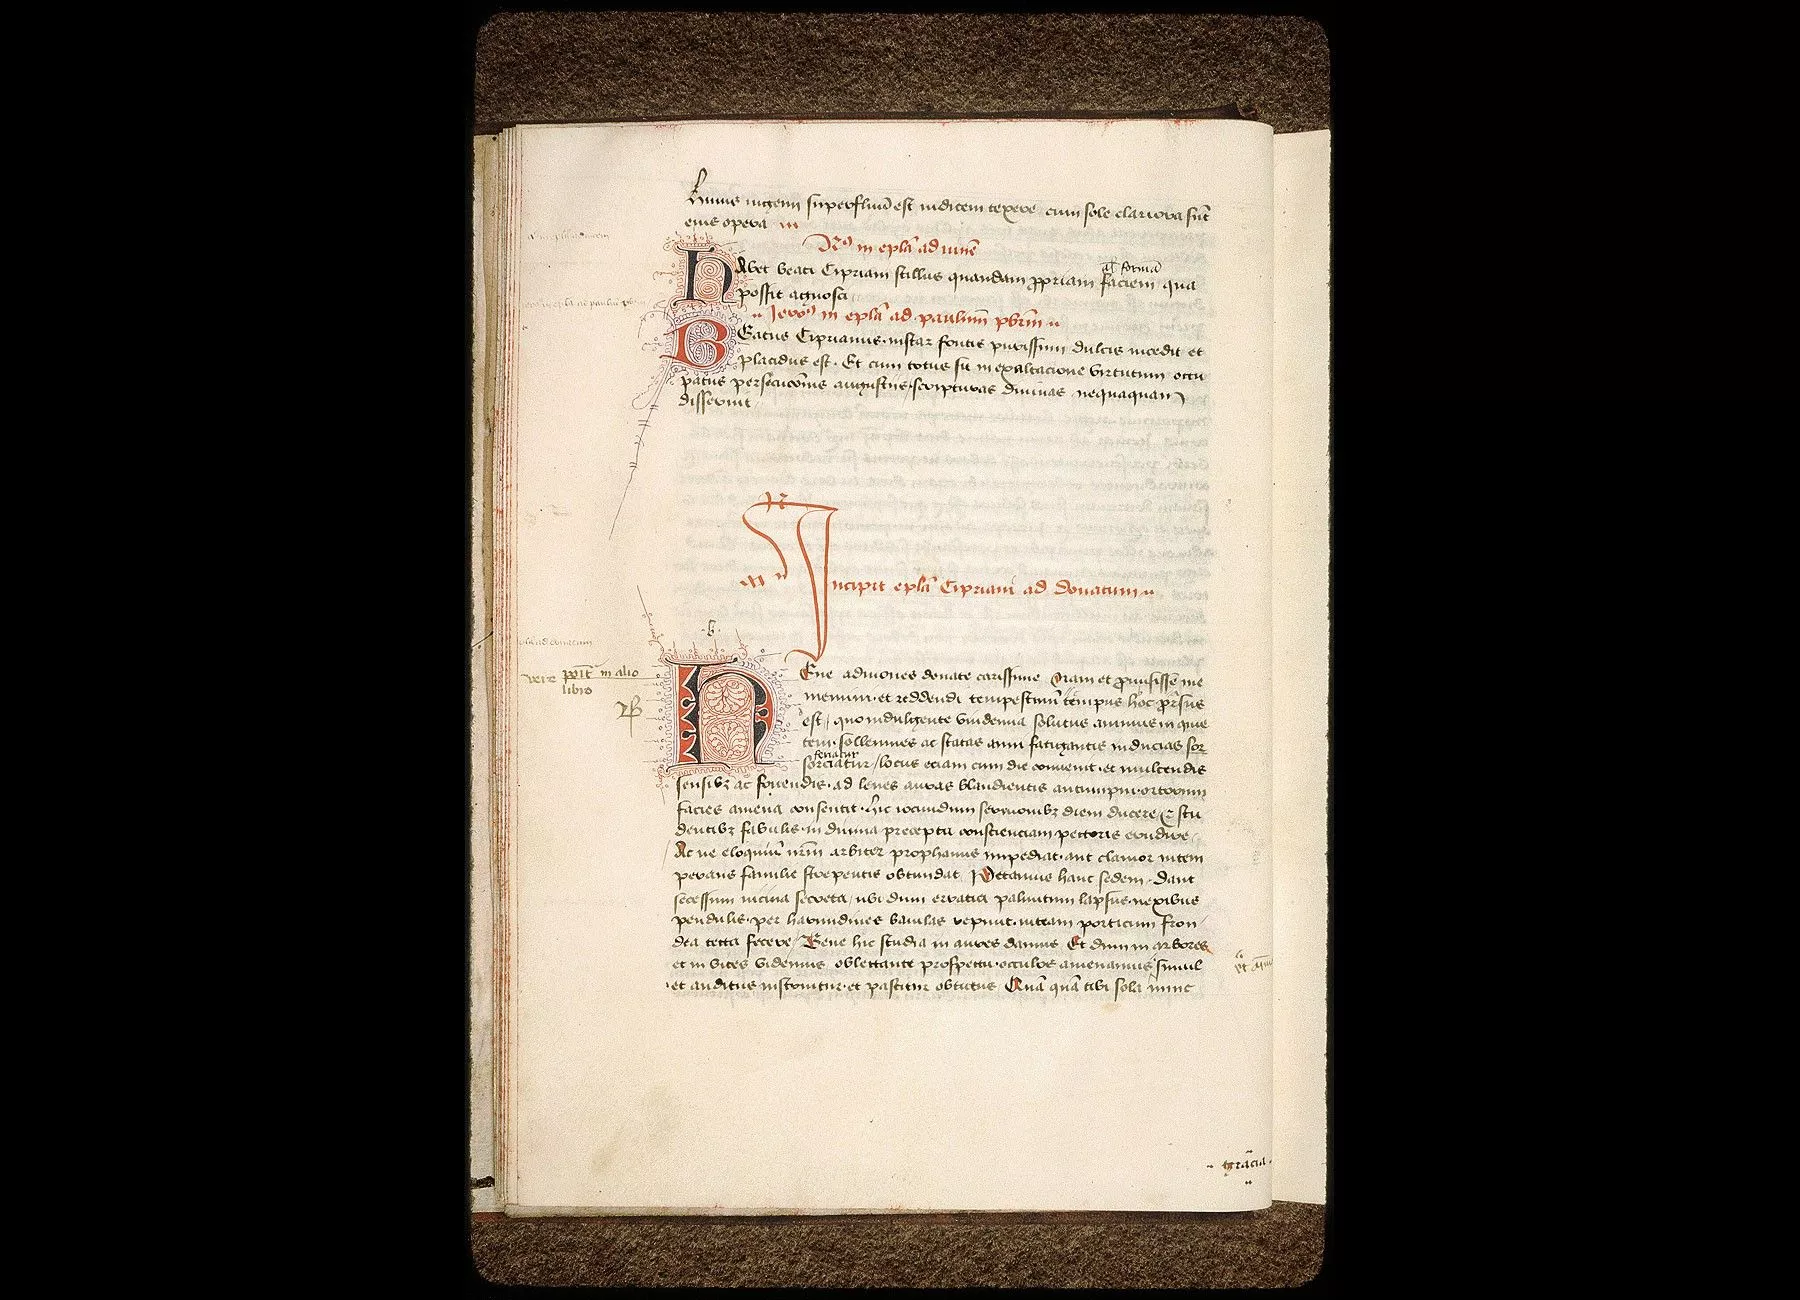 Huius ingenii superfluū est indicem texere cum sole clariora sūt
eius opera
in epl̄a ad
al' formā
HAbet beati Cipriani stillas quandam ꝓpriam faciem qua
possit agnosci
Iero⁹ in epl̄a ad paulinū pbrm̄
BEatus Ciprianus instar fontis purissimi dulcis incedit et
placidus est. Et cum totus sit in exaltacione virtutum occu
patus persecucōnis angustiis scripturas diuinas nequaquam
disseruit
Incipit epl̄a Cipriani ad donatum
.b.
in alio
libro
BEne admones donate carissime Nam et ꝓmisisse me
memini et reddendi tempestiuū tempus hoc pr̄sus
est, quo indulgente vindemia solutus animus in quie
tem sollennes ac statas anni fatigantis inducias sor
feriatur
sorciatur / locus eciam cum die conuenit et mulcendis
sensibꝫ ac fouendis ad lenes auras blandientis autumpni ortorum
facies amena consentit. Hic iocundum sermonibꝫ diem ducere et stu
dentibꝫ fabulis in diuina precepta conscienciam pectoris erudire
Ac ne eloquiū nr̄m arbiter prophanus impediat aut clamor intem
perans familie strepentis obtundat Petamus hanc sedem Dant
secessum uicina secreta / ubi dum erratici palmitum lapsus nexibus
pendulis per harundines baiulas repunt uiteam porticum fron
dea tecta fecere Bene hic studia in aures damus Et dum in arbores
et in vites videmus oblectante prospectu occulos amenamus simul
et auditus instruitur et pascitur obtutus Quā quā tibi sola nunc
gracia